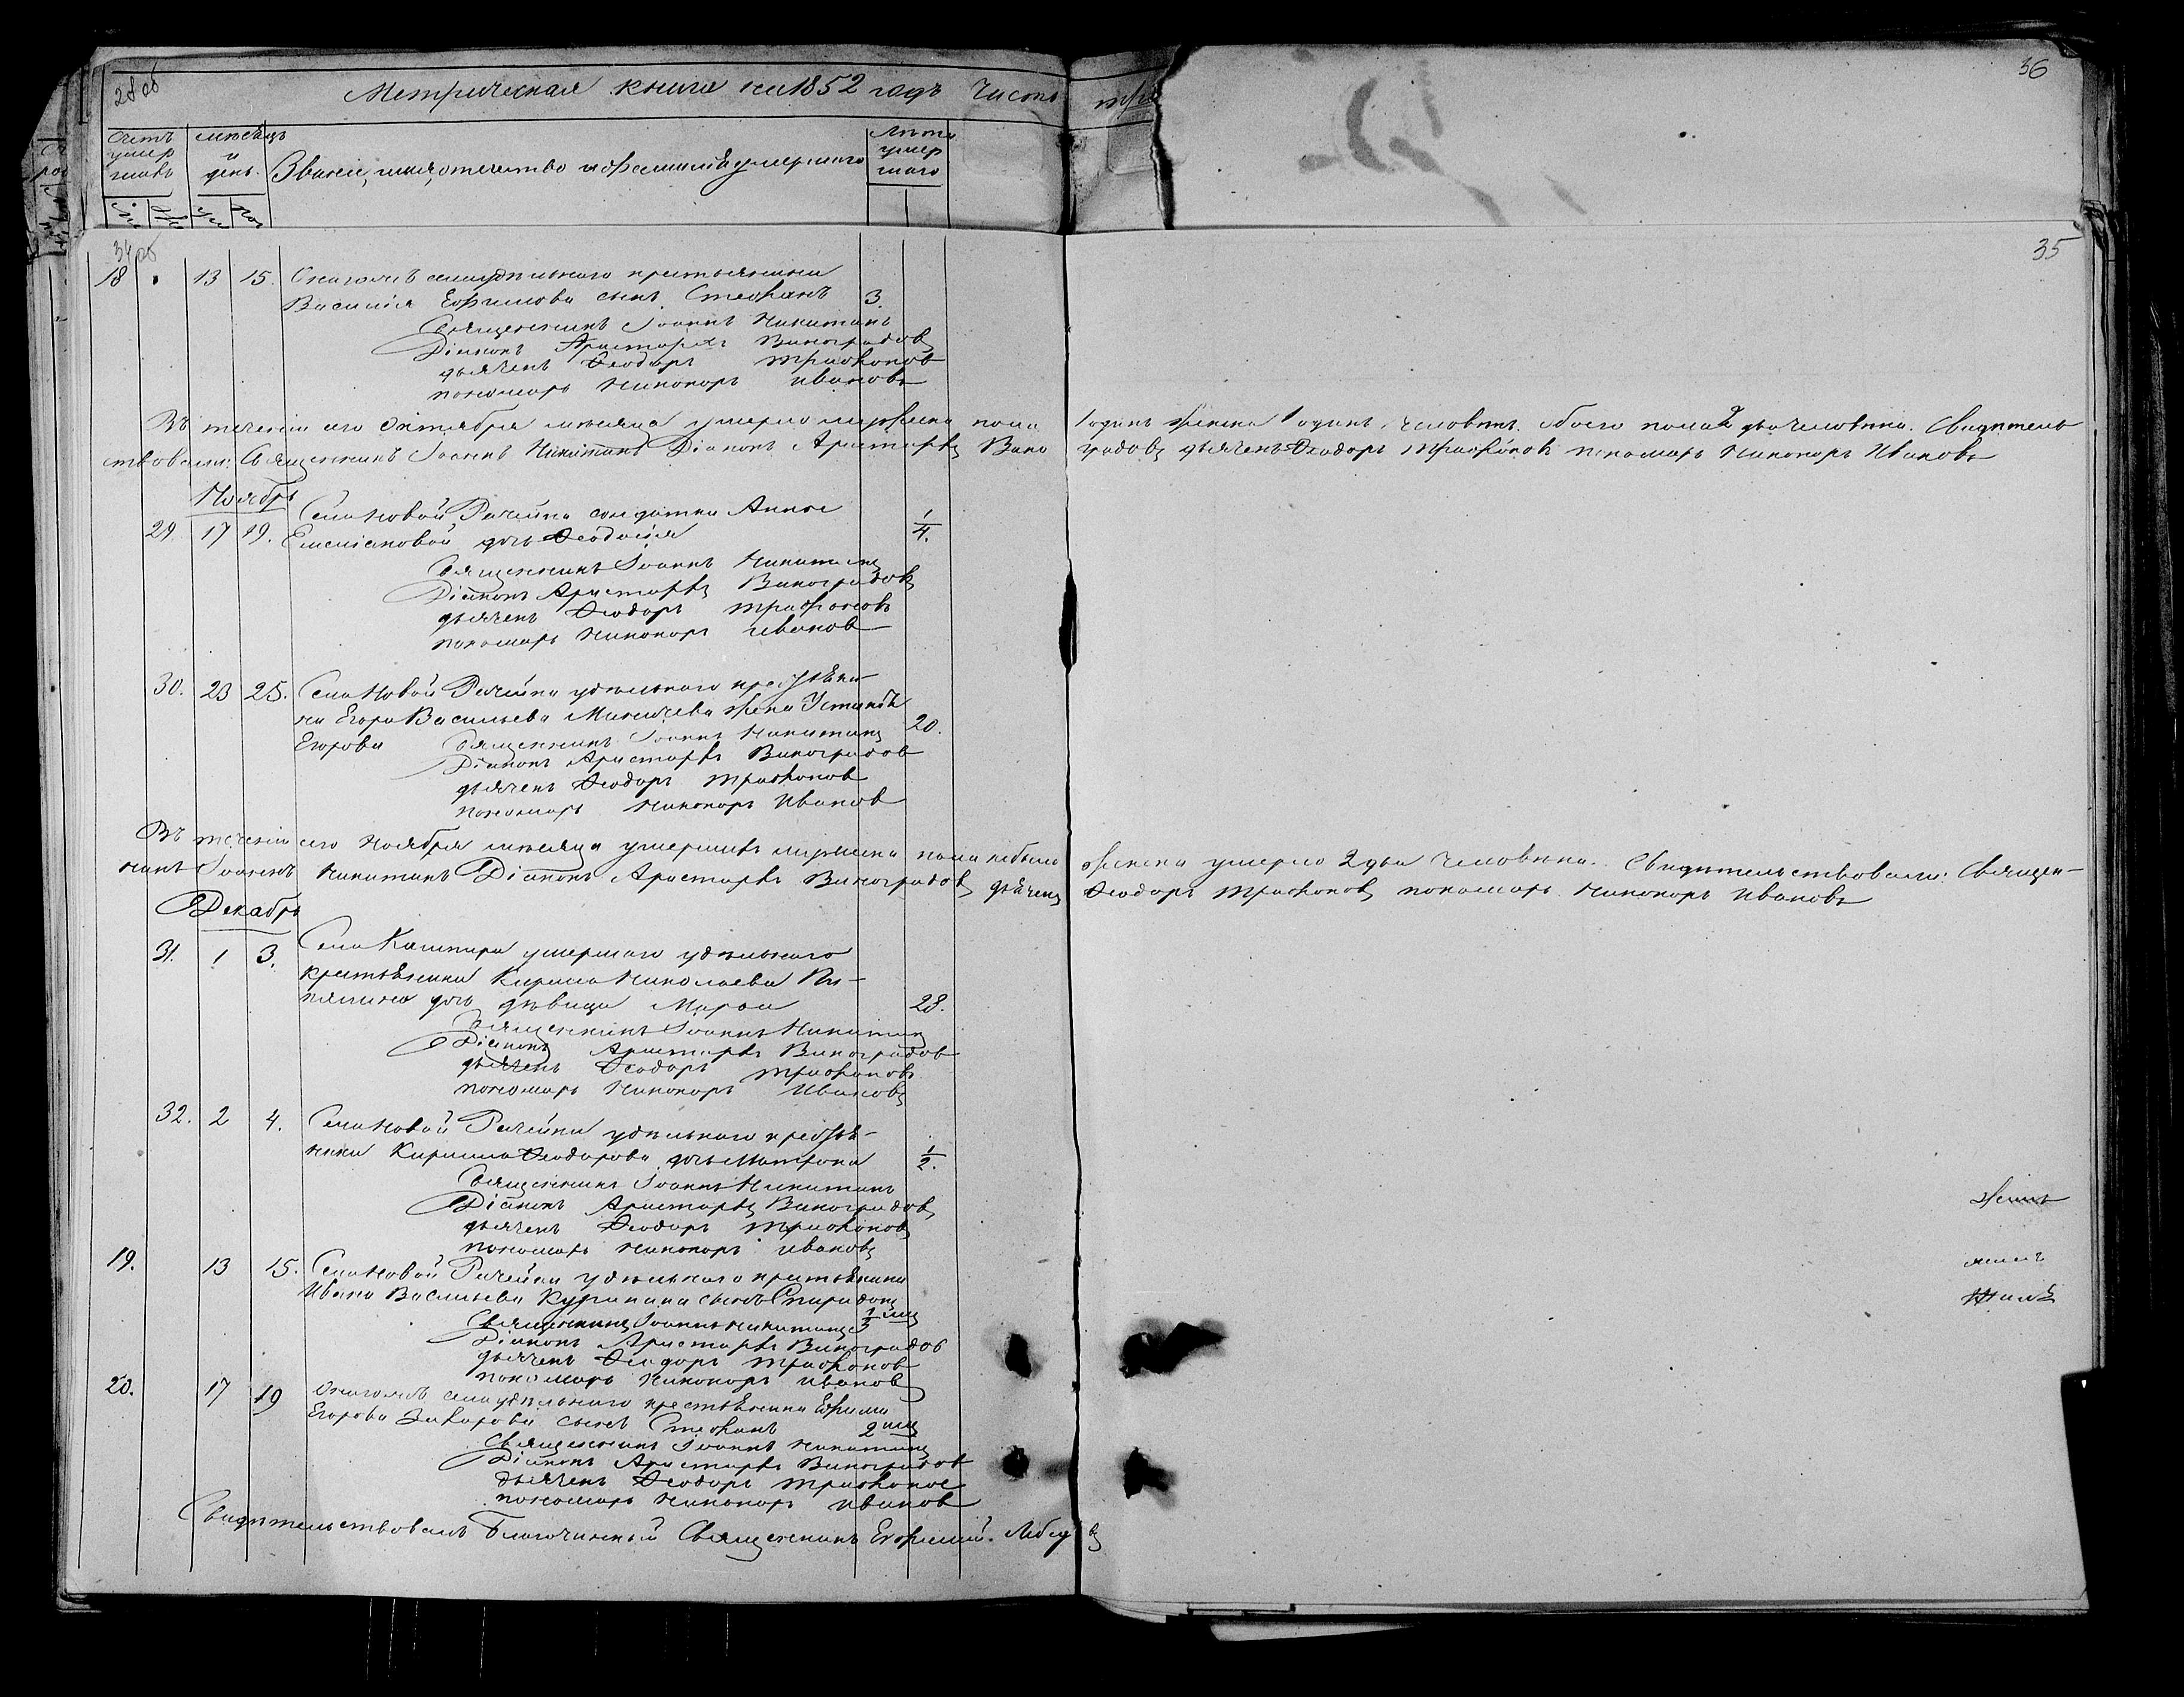 28 об
Метрическая книга на 1852 годъ Часть тре
36
Счетъ умер шихъ
мѣсяцъ и день.
Званіе, имя, отечество и фамилія умершаго
Лѣта умер шаго
34 об
35
18 13 15. Онагожъ села удѣльнаго крестьянина
Василія Ефимова сынъ Стефанъ 3.
Священникъ Іоаннъ Никитинъ
Діаконъ Аристархъ Виноградовъ
дьячекъ Ѳеодоръ Трифоновъ
пономарь Никоноръ Ивановъ
Въ теченіи сего Октября мѣсяца умерло мужеска пола 1 одинъ женска 1 одинъ человѣкъ, обоего пола 2 два человѣка. Свидѣтель
ствовали: Священникъ Іоаннъ Никитинъ Діаконъ Аристархъ Вино градовъ дьячекъ Ѳеодоръ Трифоновъ пономарь Никоноръ Ивановъ
Ноябрь
29. 17 19. Села Новой Рачейки солдатки Анны
Емеліановой дочь Ѳеодосія 1/4.
Священникъ Іоаннъ Никитинъ
Діаконъ Аристархъ Виноградовъ
дьячекъ Ѳеодоръ Трифоновъ
пономарь Никоноръ Ивановъ
30. 23 25. Села Новой Рачейки удѣльнаго крестьяни-
на Егора Васильева жена Устинья
Егорова 20.
Священникъ Іоаннъ Никитинъ
Діаконъ Аристархъ Виноградовъ
дьячекъ Ѳеодоръ Трифоновъ
пономарь Никоноръ Ивановъ
Въ теченіи сего Ноября мѣсяца умершихъ мужеска пола небыло женска умерло 2 два человѣка. Свидѣтельствовали: Священ-
никъ Іоаннъ Никитинъ Діаконъ Аристархъ Виноградовъ дьячекъ Ѳеодоръ Трифоновъ пономарь Никоноръ Ивановъ
Декабрь
31. 1 3. Села Кашпира умершаго удѣльнаго
крестьянина Кирила Николаева
дочь дѣвица Марѳа 28.
Священникъ Іоаннъ Никитинъ
Діаконъ Аристархъ Виноградовъ
дьячекъ Ѳеодоръ Трифоновъ
пономарь Никоноръ Ивановъ
32. 2 4. Села Новой Рачейки удѣльнаго крестья-
нина Кирила Ѳеодорова дочь Матрона 1/2.
Священникъ Іоаннъ Никитинъ
Діаконъ Аристархъ Виноградовъ
дьячекъ Ѳеодоръ Трифоновъ
пономарь Никоноръ Ивановъ
19. 13 15. Села Новой Рачейки удѣльнаго крестьянина
Ивана Васильева сынъ Спиридонъ
Священникъ Іоаннъ Никитинъ
Діаконъ Аристархъ Виноградовъ
дьячекъ Ѳеодоръ Трифоновъ
пономарь Никоноръ Ивановъ
20. 17 19 Онагожъ села удѣльнаго крестьянина Ефима
Егорова сынъ Стефанъ 2
Священникъ Іоаннъ Никитинъ
Діаконъ Аристархъ Виноградовъ
дьячекъ Ѳеодоръ Трифоновъ
пономарь Никоноръ Ивановъ
Свидѣтельствовалъ Благочинный Священникъ Ефимій